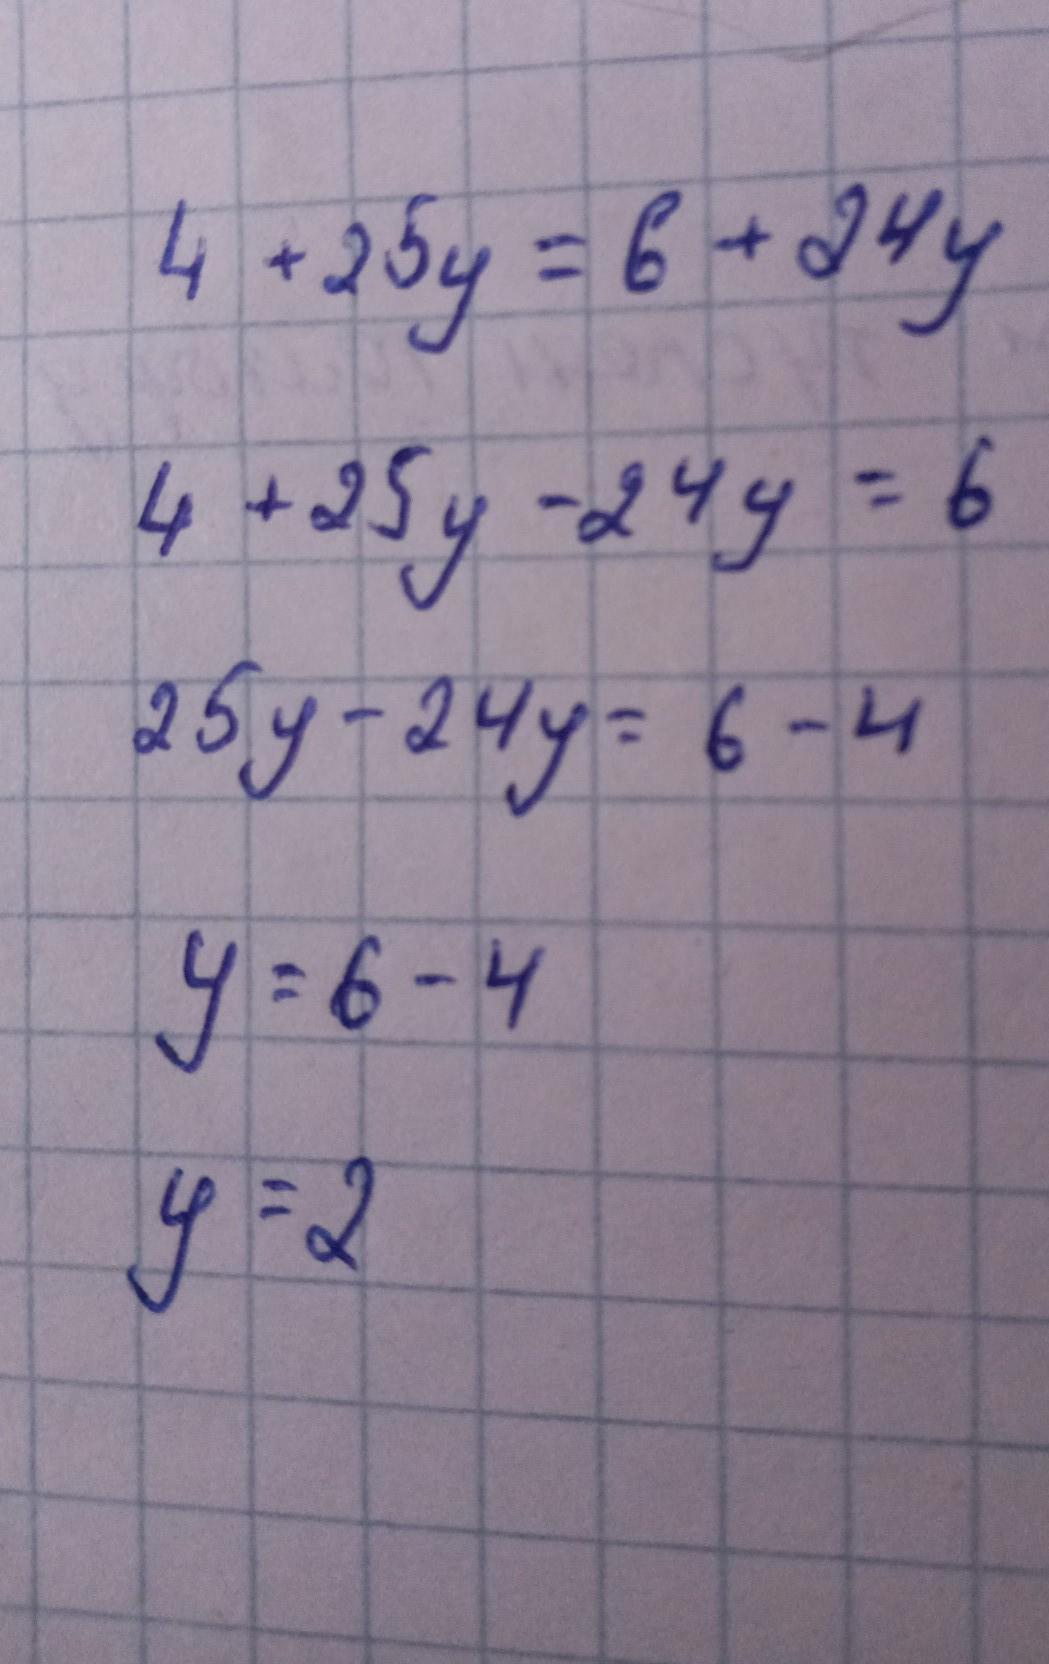 4 + 25y = 6 + 24y
4 + 25y - 24y = 6
25y - 24y = 6 - 4
y = 6 - 4
y = 2